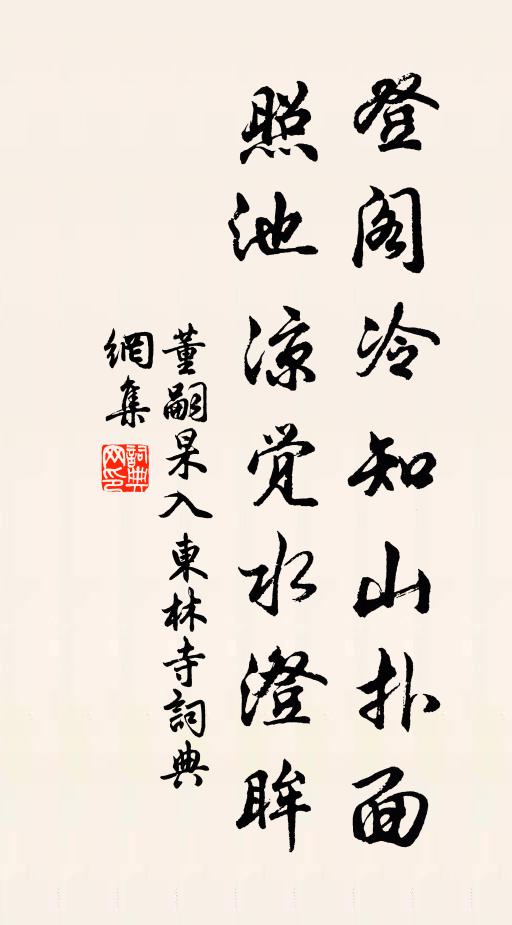 登阁冷知山扑面
照池凉觉水澄眸
董嗣杲入東林寺詞典
網集
詞典网印